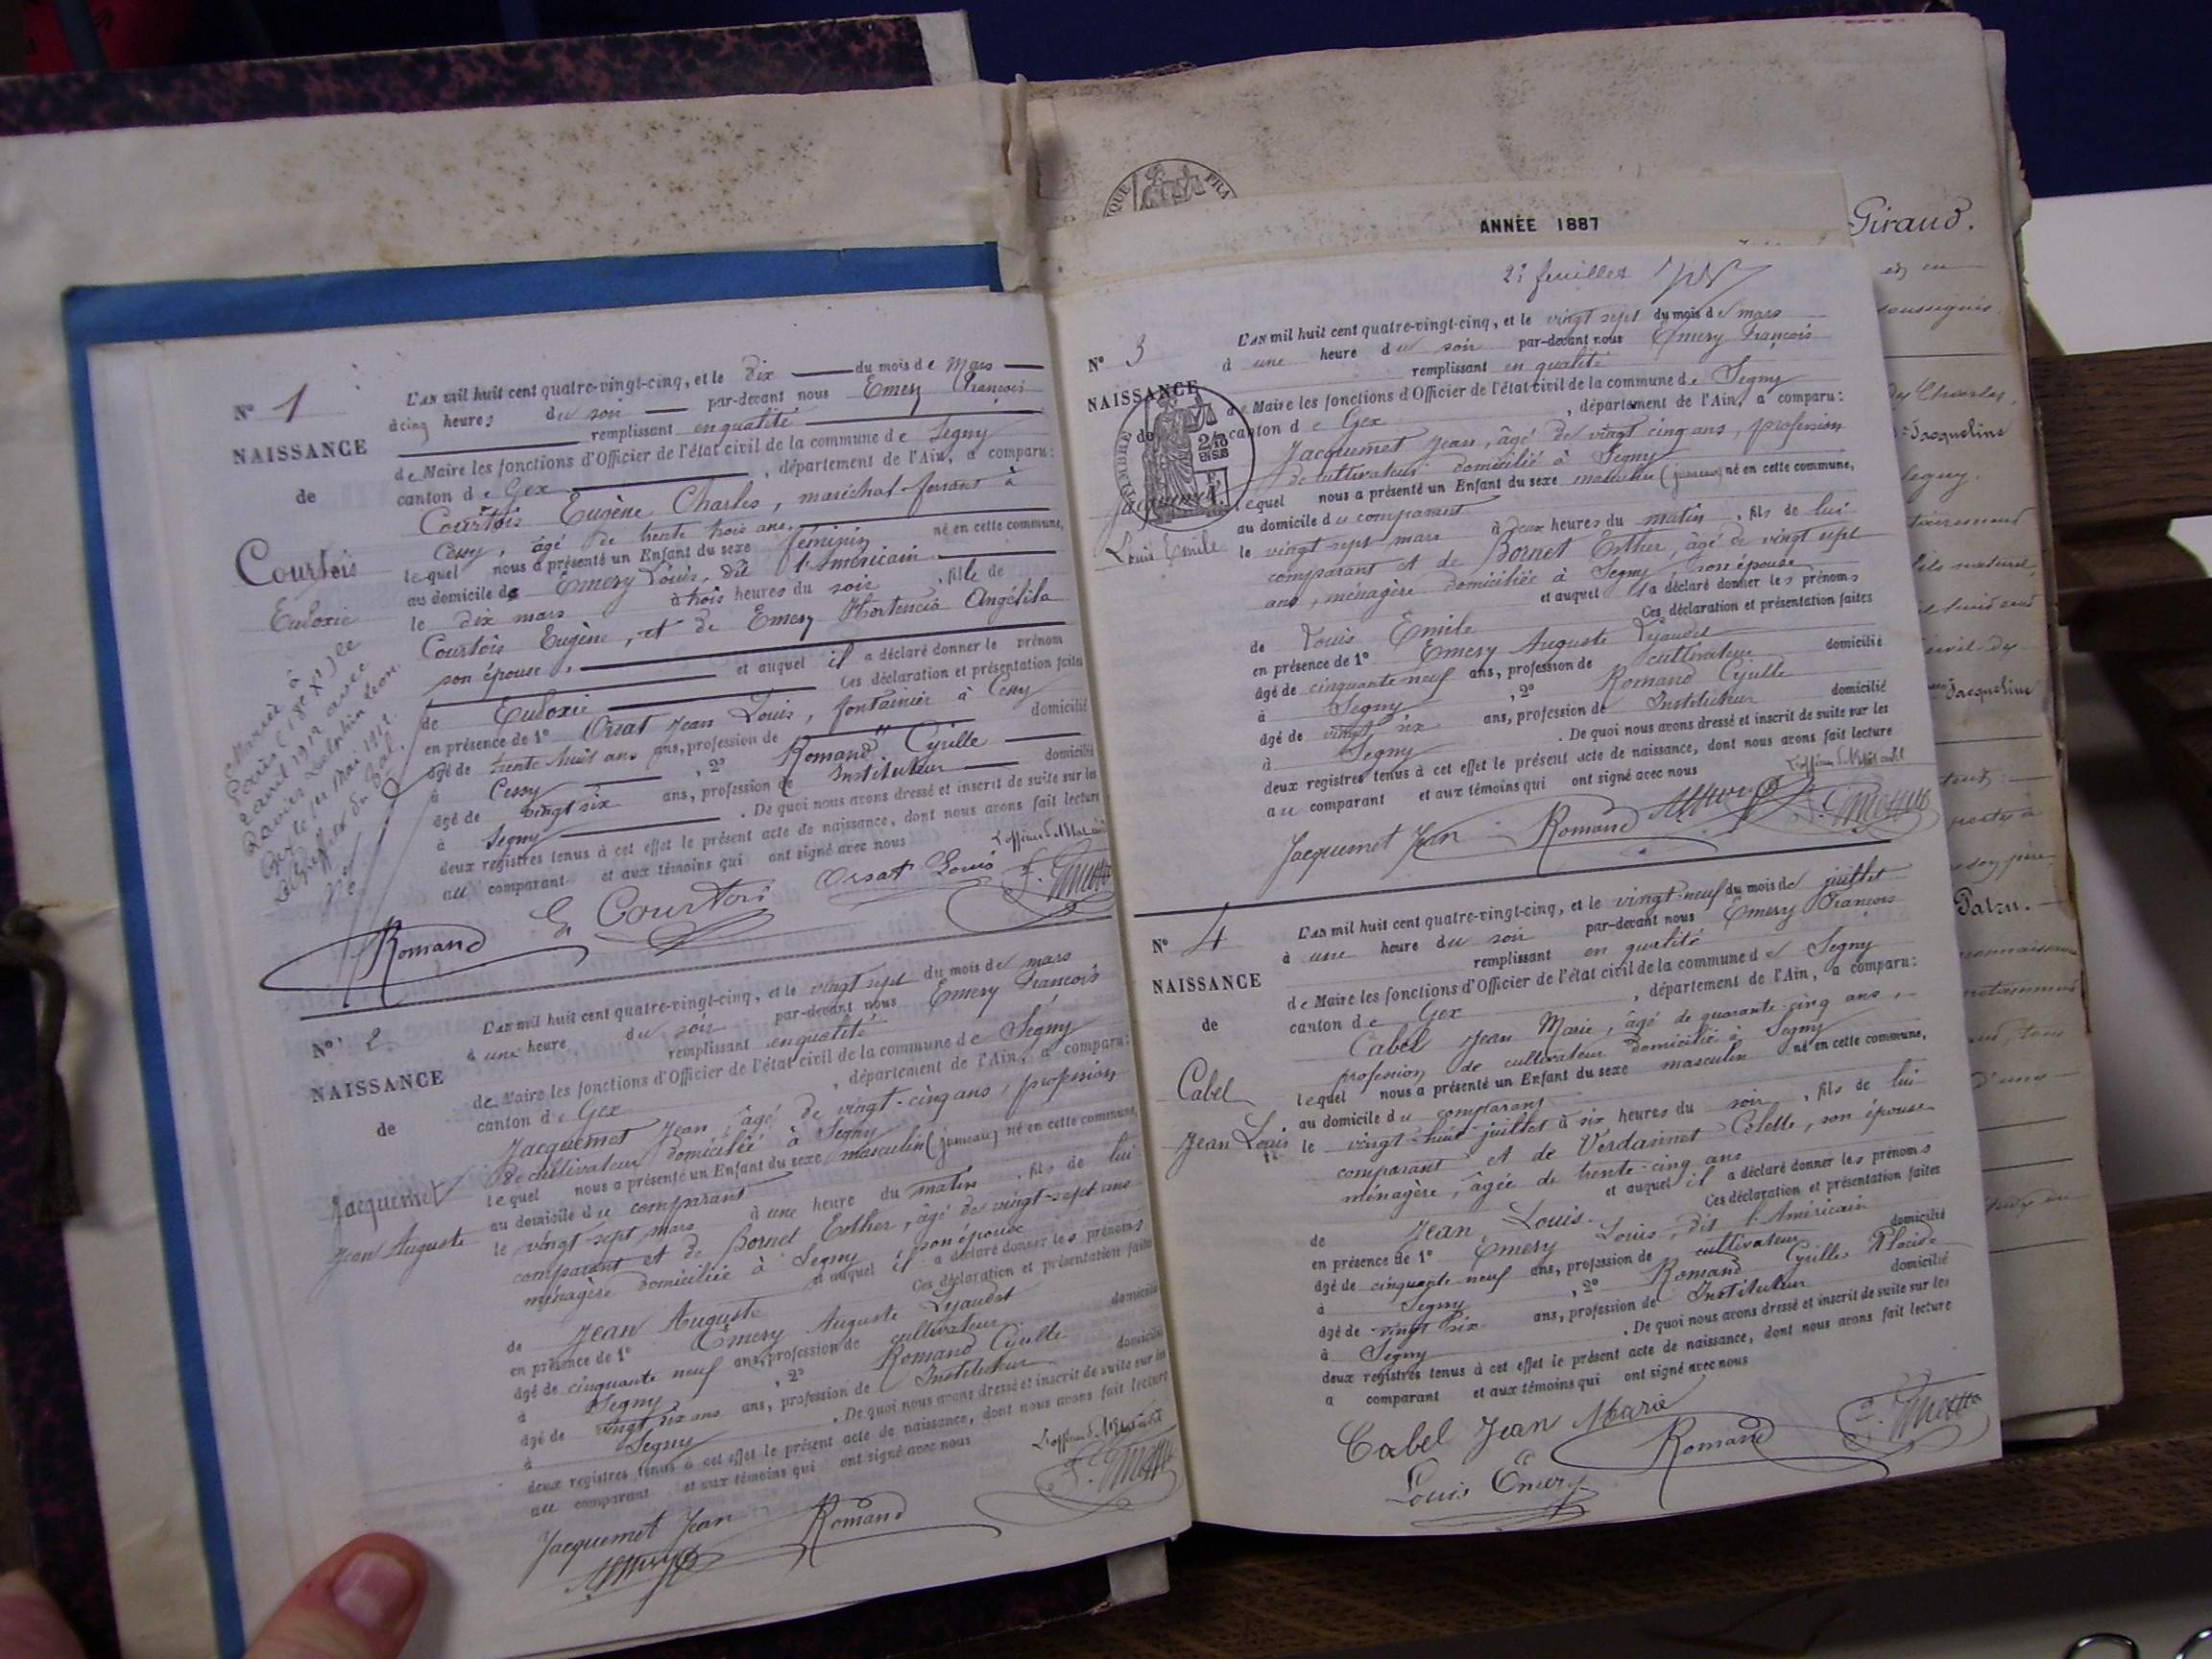 Nº 1
NAISSANCE
de
Courtois
Eudoxie
Mariée à
Paris (18e Xt) le
avril 1912 avec
Xavier Delphin Léon
Gex le 1er Mai 1912.
Le Greffier du Bal.
L'AN mil huit cent quatre-vingt-cinq, et le dix du mois de Mars
à cinq heures du soir par-devant nous Emery François
remplissant en qualité
de Maire les fonctions d'Officier de l'état civil de la commune de Segny
canton de Gex , département de l'Ain, a comparu:
Courtois Eugène Charles, maréchal-ferrant à
Cessy, âgé de trente trois ans,
lequel nous a présenté un Enfant du sexe féminin né en cette commune,
au domicile de Emery Louis, dit l'Américain
le dix mars à trois heures du soir , fille de
Courtois Eugène, et de Emery Hortencia Angélila
son épouse, et auquel il a déclaré donner le prénom
de Eudoxie Ces déclaration et présentation faites
en présence de 1º Orsat Jean Louis, fontainier à Cessy
âgé de trente huit ans ans, profession de " domicilié
à Cessy , 2º Romand Cyrille
âgé de vingt six ans, profession de Instituteur domicilié
à Segny . De quoi nous avons dressé et inscrit de suite sur les
deux registres tenus à cet effet le présent acte de naissance, dont nous avons fait lecture
au comparant et aux témoins qui ont signé avec nous
L'officier de l'Etat civil
Romand E. Courtois Orsat Louis F. Emery
Nº 2
NAISSANCE
de
Jacquemet
Jean Auguste
L'AN mil huit cent quatre-vingt-cinq, et le vingt sept du mois de mars
à une heure du soir par-devant nous Emery François
remplissant en qualité
de Maire les fonctions d'Officier de l'état civil de la commune de Segny
canton de Gex , département de l'Ain, a comparu:
Jacquemet Jean, âgé de vingt-cinq ans, profession
de cultivateur domicilié à Segny
lequel nous a présenté un Enfant du sexe masculin (jumeau) né en cette commune,
au domicile du comparant
le vingt-sept mars à une heure du matin , fils de lui
comparant et de Bornet Esther, âgé de vingt-sept ans
ménagère domiciliée à Segny son épouse
et auquel il a déclaré donner les prénoms
de Jean Auguste Ces déclaration et présentation faites
en présence de 1º Emery Auguste Lyaudet
âgé de cinquante neuf ans, profession de cultivateur domicilié
à Segny , 2º Romand Cyrille
âgé de vingt six ans ans, profession de Instituteur domicilié
à Segny . De quoi nous avons dressé et inscrit de suite sur les
deux registres tenus à cet effet le présent acte de naissance, dont nous avons fait lecture
au comparant et aux témoins qui ont signé avec nous
L'officier de l'Etat civil
Jacquemet Jean Romand F. Emery
ANNÉE 1887
2e feuillet
Nº 3
NAISSANCE
de
Jacquemet
Louis Emile
L'AN mil huit cent quatre-vingt-cinq, et le vingt sept du mois de mars
à une heure du soir par-devant nous Emery François
remplissant en qualité
de Maire les fonctions d'Officier de l'état civil de la commune de Segny
canton de Gex , département de l'Ain, a comparu:
Jacquemet Jean, âgé de vingt cinq ans, profession
de cultivateur domicilié à Segny
lequel nous a présenté un Enfant du sexe masculin (jumeau) né en cette commune,
au domicile du comparant
le vingt-sept mars à deux heures du matin , fils de lui
comparant et de Bornet Esther, âgé de vingt sept
ans, ménagère domiciliée à Segny son épouse
et auquel il a déclaré donner les prénoms
de Louis Emile Ces déclaration et présentation faites
en présence de 1º Emery Auguste Lyaudet
âgé de cinquante neuf ans, profession de cultivateur domicilié
à Segny , 2º Romand Cyrille
âgé de vingt six ans, profession de Instituteur domicilié
à Segny . De quoi nous avons dressé et inscrit de suite sur les
deux registres tenus à cet effet le présent acte de naissance, dont nous avons fait lecture
au comparant et aux témoins qui ont signé avec nous
L'officier de l'Etat civil
Jacquemet Jean Romand F. Emery
Nº 4
NAISSANCE
de
Cabel
Jean Louis
L'AN mil huit cent quatre-vingt-cinq, et le vingt-neuf du mois de juillet
à une heure du soir par-devant nous Emery François
remplissant en qualité
de Maire les fonctions d'Officier de l'état civil de la commune de Segny
canton de Gex , département de l'Ain, a comparu:
Cabel Jean Marie, âgé de quarante-cinq ans,
profession de cultivateur domicilié à Segny
lequel nous a présenté un Enfant du sexe masculin né en cette commune,
au domicile du comparant
le vingt-huit juillet à six heures du soir , fils de lui
comparant et de Verdannet Colette, son épouse
ménagère, âgée de trente-cinq ans
et auquel il a déclaré donner les prénoms
de Jean, Louis. Ces déclaration et présentation faites
en présence de 1º Emery Louis, dit l'Américain
âgé de cinquante neuf ans, profession de cultivateur domicilié
à Segny , 2º Romand Cyrille Placide
âgé de vingt six ans, profession de Instituteur domicilié
à Segny . De quoi nous avons dressé et inscrit de suite sur les
deux registres tenus à cet effet le présent acte de naissance, dont nous avons fait lecture
a comparant et aux témoins qui ont signé avec nous
Cabel Jean Marie F. Emery
Louis Emery Romand
Giraud.
soussignés
Charles,
Jacqueline
Segny.
fils naturel
Jacqueline